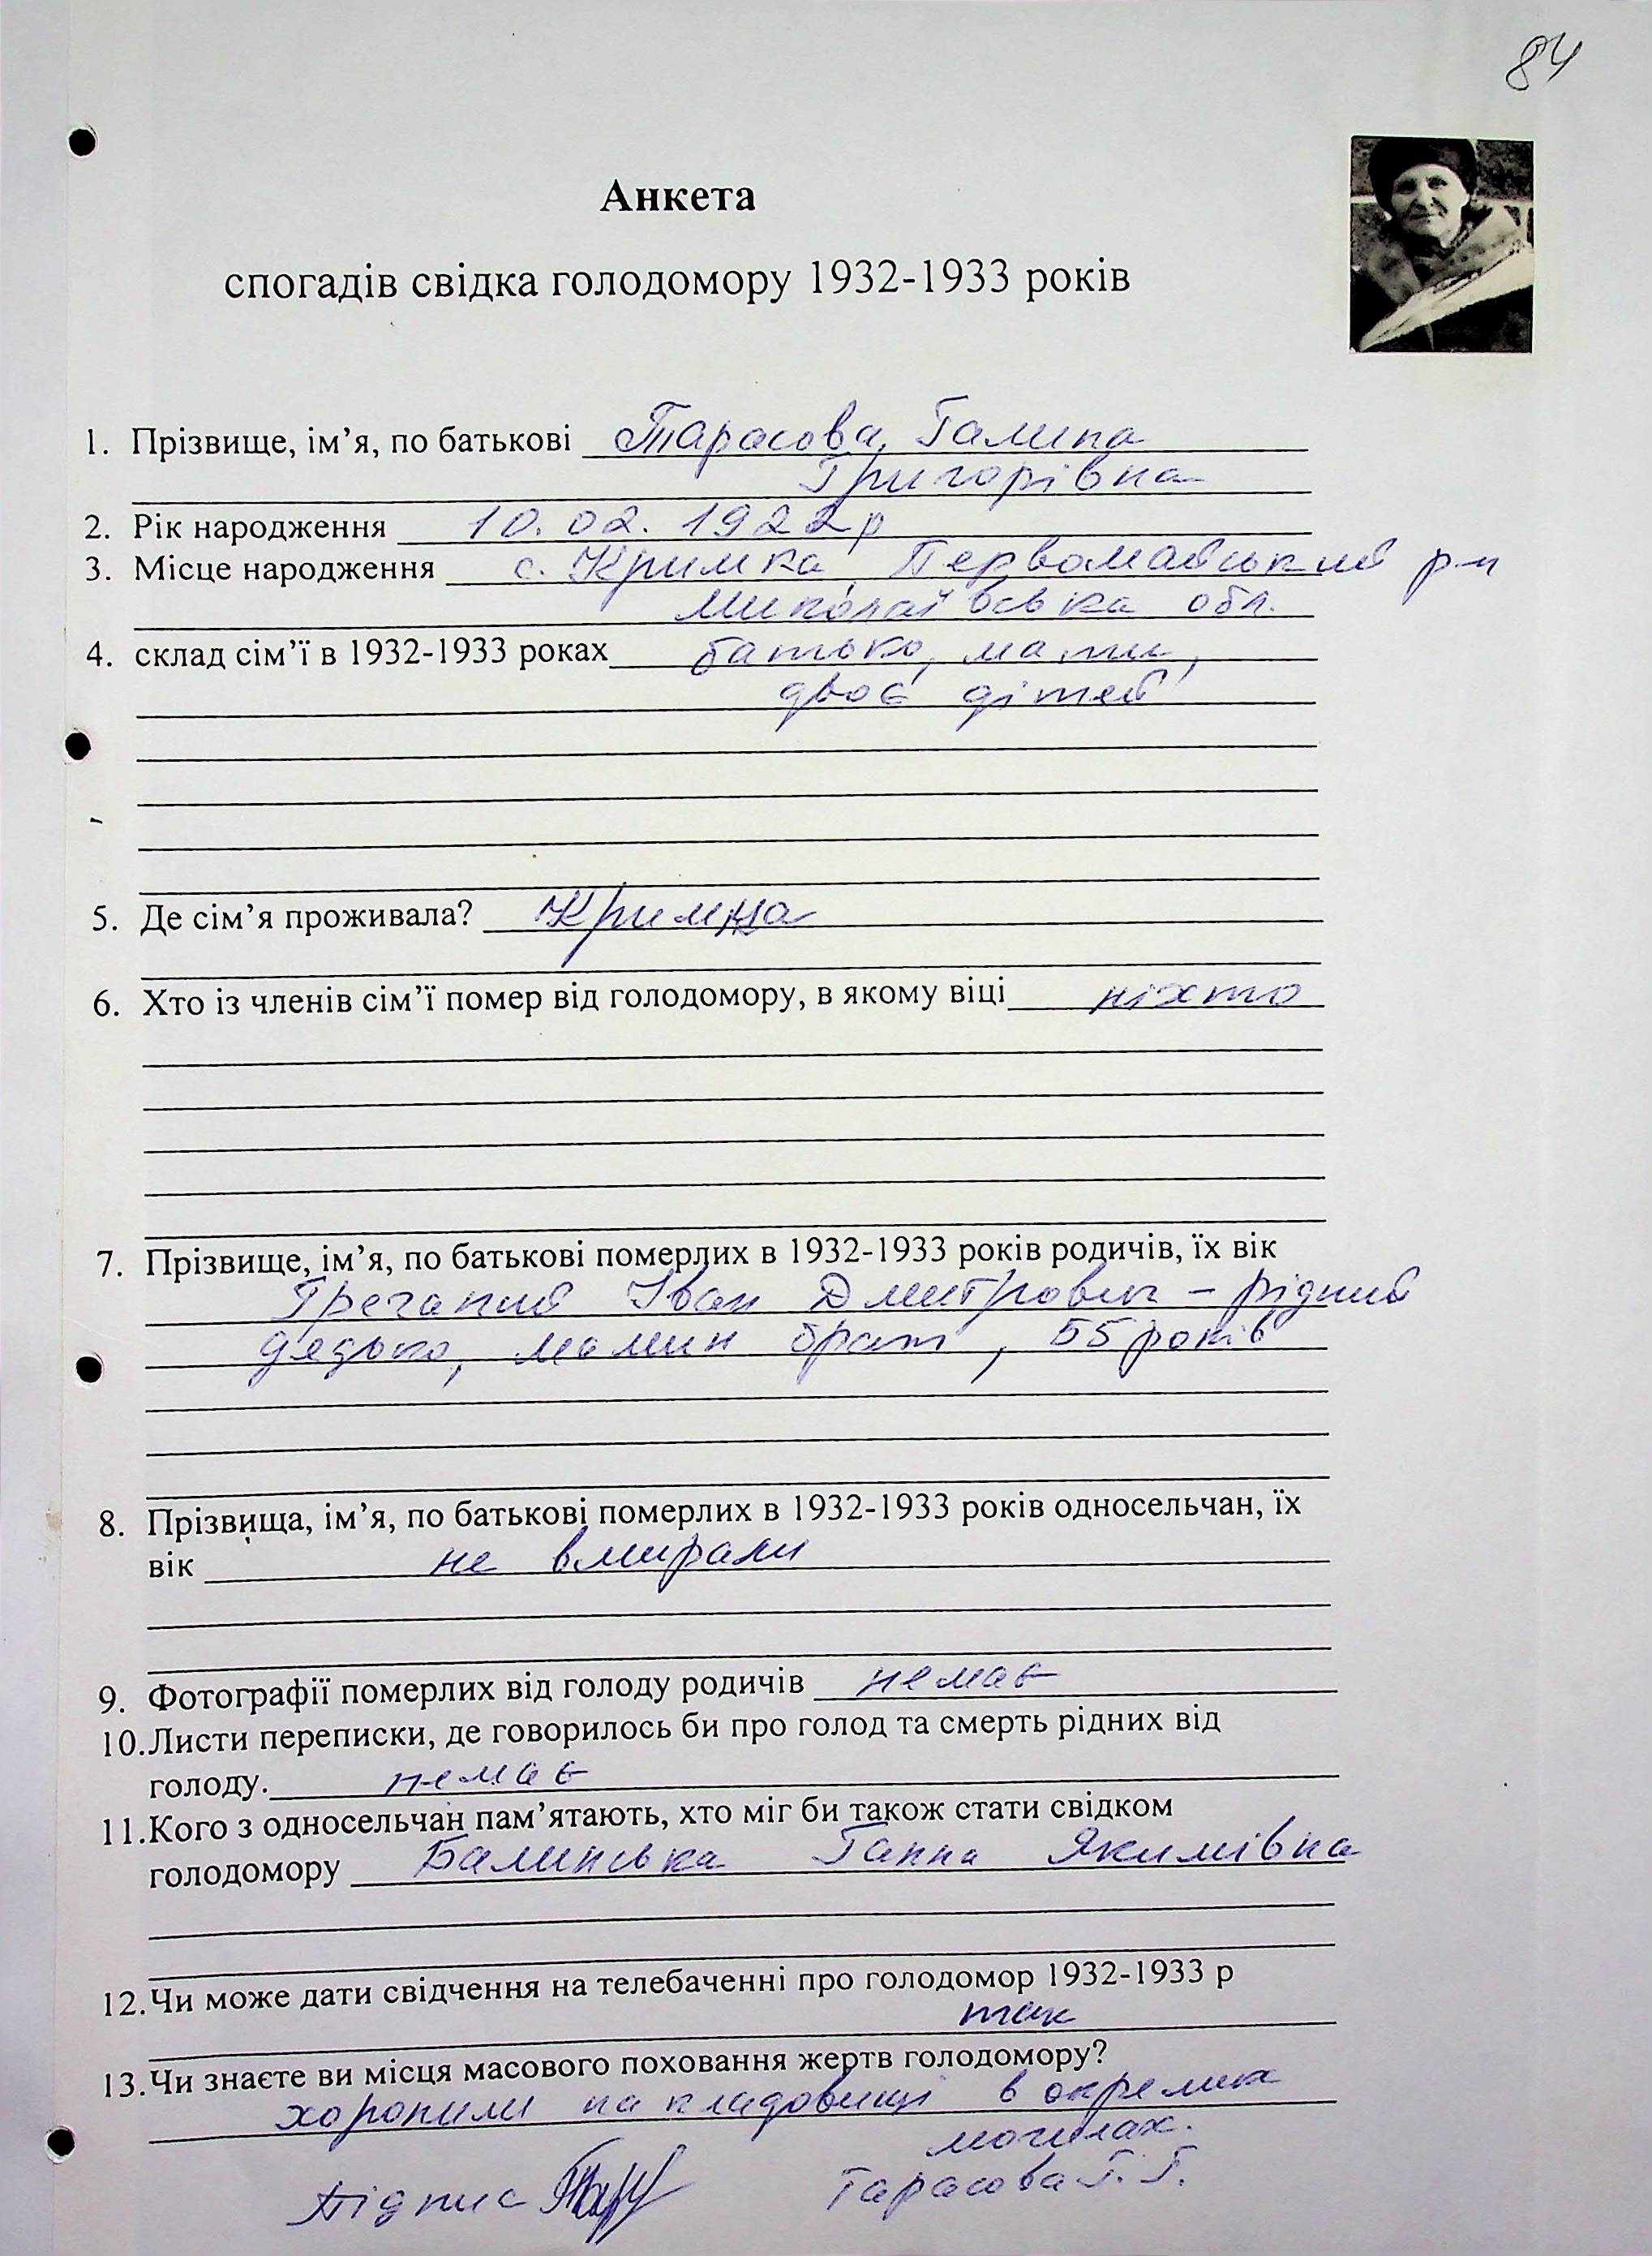 84
Анкета
спогадів свідка голодомору 1932-1933 років
1. Прізвище, ім’я, по батькові Тарасова, Галина
Григорівна
2. Рік народження 10.02.1922р
3. Місце народження с. Кримка, Первомайський р-н
Миколаївська обл.
4. склад сім’ї в 1932-1933 роках батько, мати,
двоє дітей
5. Де сім’я проживала? Кримка
6. Хто із членів сім’ї помер від голодомору, в якому віці ніхто
7. Прізвище, ім’я, по батькові померлих в 1932-1933 років родичів, їх вік
Гречаний Іван Дмитрович - рідний
дядько, мамин брат, 55 років
8. Прізвища, ім’я, по батькові померлих в 1932-1933 років односельчан, їх
вік не вмирали
9. Фотографії померлих від голоду родичів немає
10. Листи переписки, де говорилось би про голод та смерть рідних від
голоду. немає
11. Кого з односельчан пам’ятають, хто міг би також стати свідком
голодомору Балинська Ганна Якимівна
12. Чи може дати свідчення на телебаченні про голодомор 1932-1933 р
так
13. Чи знаєте ви місця масового поховання жертв голодомору?
хоронили на кладовищі в окремих
могилах.
Підпис Тарасова Г. Г.